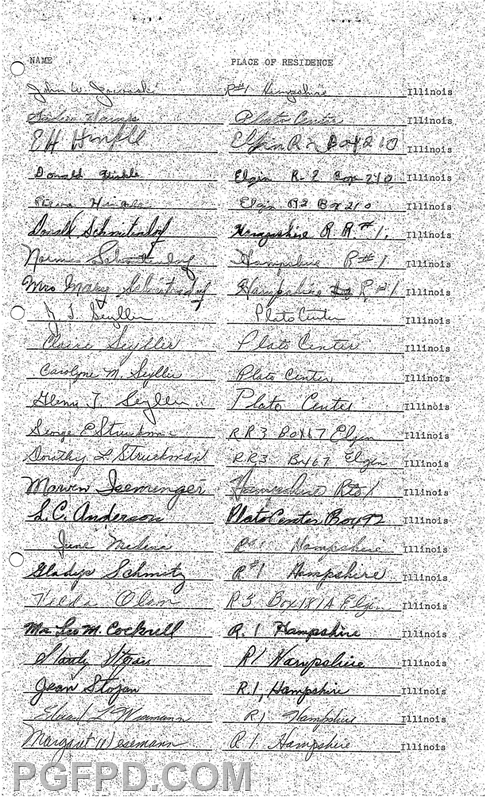 NAME PLACE OF RESIDENCE
John W. R#1 Hampshire Illinois
Plato Center Illinois
E H Hinkle Elgin R 2 Box 210 Illinois
Donald Hinkle Elgin R. 2 Box 210 Illinois
Elgin R2 Box 210 Illinois
Donald Schmitendorf Hampshire R.R. #1. Illinois
Norman Hampshire R#1 Illinois
Mrs Hampshire R#1 Illinois
Seyller Plato Center Illinois
Claire Seyller Plato Center Illinois
Carolyne M. Seyller Plato Center Illinois
Glenn T. Seyller Plato Center Illinois
George E Struckman RR3 Box 67 Elgin Illinois
Dorothy L Struckman RR3 Box 67 Elgin Illinois
Marvin Hampshire Rte 1 Illinois
L.C. Anderson Plato Center Box 92 Illinois
June Medina R#1 Hampshire Illinois
Gladys Schmitz R#1 Hampshire Illinois
Olson R3 Box 181A Elgin Illinois
Mrs Leo M. Cockrell R.1 Hampshire Illinois
R1 Hampshire Illinois
Jean Stojan R.1, Hampshire Illinois
R1 Hampshire Illinois
Margaret Wesemann R 1 Hampshire Illinois
PGFPD.COM